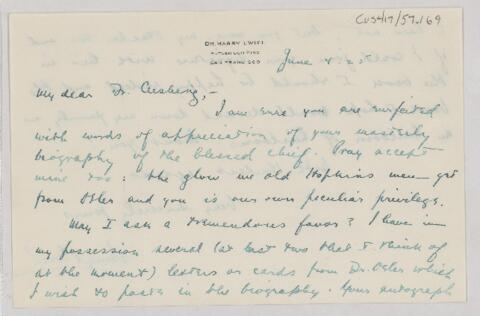 CUS417/57.169
DR. HARRY L WIEL
BUTLER BUILDING
SAN FRANCISCO
June
My dear Dr. Cushing,-
I am sure you are surfeited
with words of appreciation of your masterly
biography of the blessed chief. Pray accept
mine too: the glow we old Hopkins men get
from Osler and you is our own peculiar privilege.
May I ask a tremendous favor? I have in
my possession several (at last two that I think of
at the moment) letters or cards from Dr. Osler which
I wish to paste in the biography. Your autograph